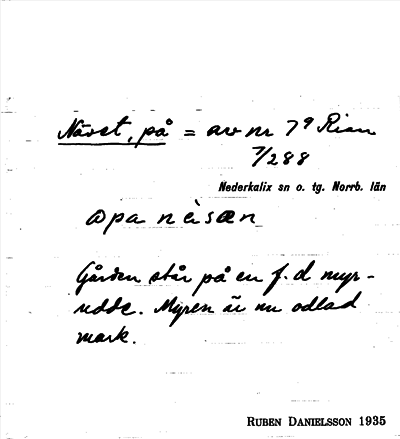 Näset, på = av nr 7⁹ Rian
7/288
Nederkalix sn o. tg. Norrb. län
apa nèisæn
Gården står på en f.d myr-
udde. Myren är nu odlad
mark.
RUBEN DANIELSSON 1935